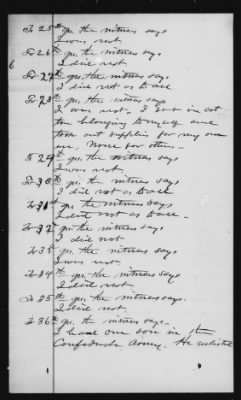 To 25th qu. the witness says
I was not
To 26th qu. the witness says
I did not.
To 27th qu. the witness says
I did not as to all
To 28th qu. the witness says
I was not. I sent in cot
ton belonging to myself and
took out supplies for my own
use, none for others.
To 29th qu. the witness says
I was not.
To 30th qu. the witness says
I did not as to all
To 31st qu. the witness says
I did not as to all.
To 32nd qu. the witness says
I did not
To 33 qu. the witness says
I was not
To 34th qu. the witness says
I did not
To 35th qu. the witness says.
I did not.
To 36th qu. the witness says.
I have one son in the
Confederate Army. He enlisted